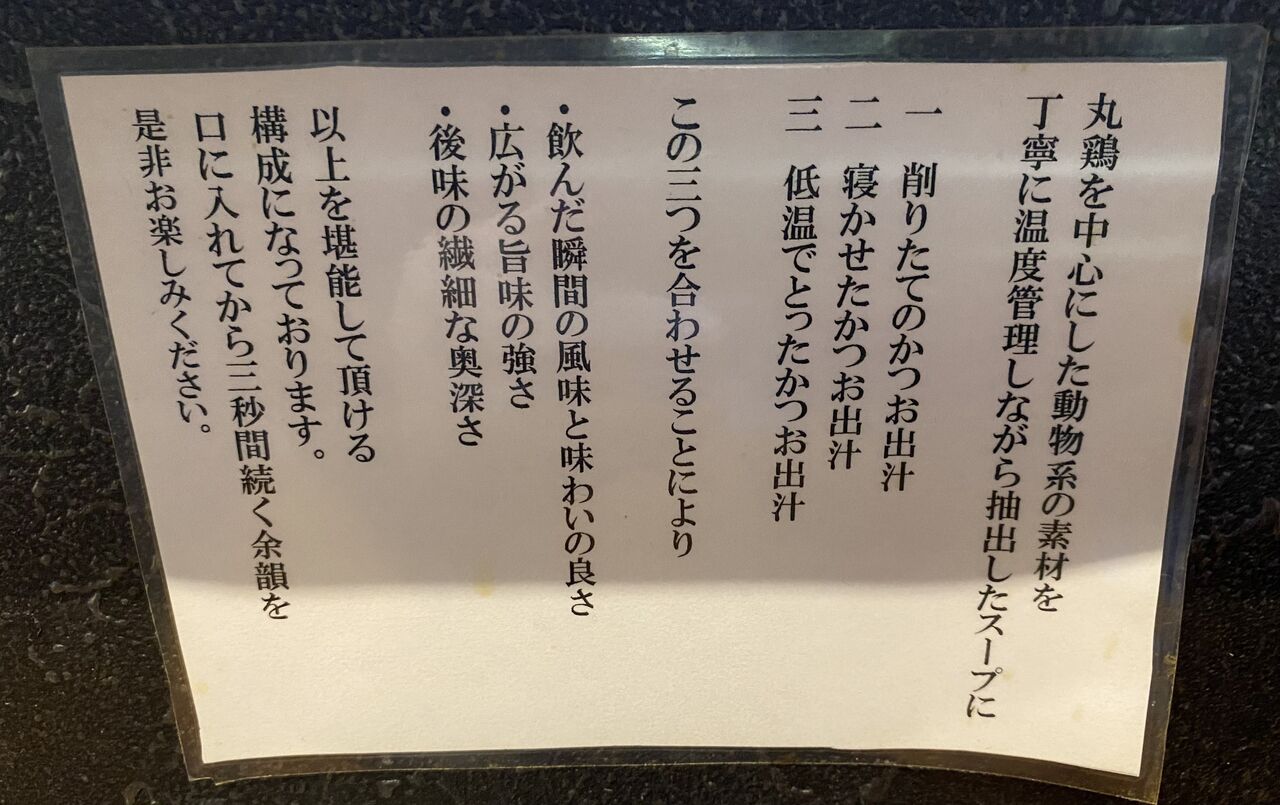 丸鶏を中心にした動物系の素材を
丁寧に温度管理しながら抽出したスープに
一　削りたてのかつお出汁
二　寝かせたかつお出汁
三　低温でとったかつお出汁
この三つを合わせることにより
・飲んだ瞬間の風味と味わいの良さ
・広がる旨味の強さ
・後味の繊細な奥深さ
以上を堪能して頂ける
構成になっております。
口に入れてから三秒間続く余韻を
是非お楽しみください。